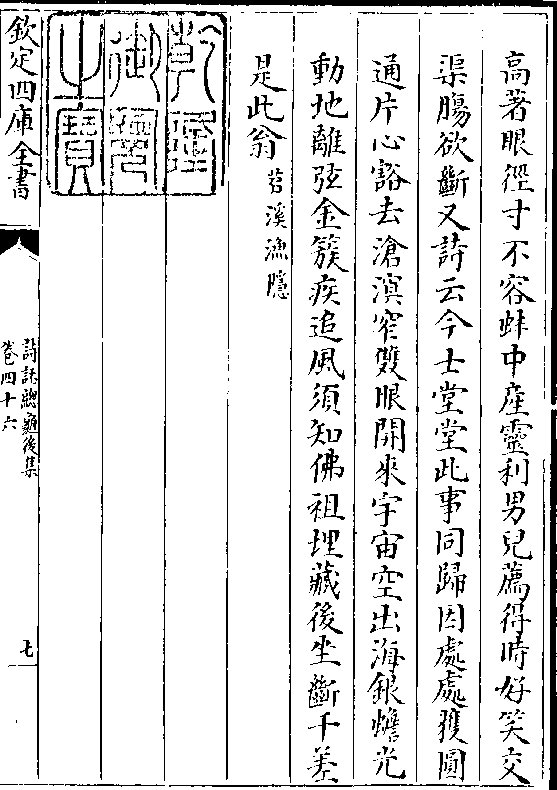 高著眼徑寸不容蚌中産靈利男兒薦得時好笑交
渠膓欲斷又詩云今士堂堂此事同歸因處處獲圓
通片心豁去滄溟窄雙眼開來宇宙空出海銀蟾光
動地離弦金簇疾追風須知佛祖埋藏後坐斷千差
是此翁苕溪漁隱
乾隆御覽之寶
欽定四庫全書
詩話總龜後集
卷四十六
七